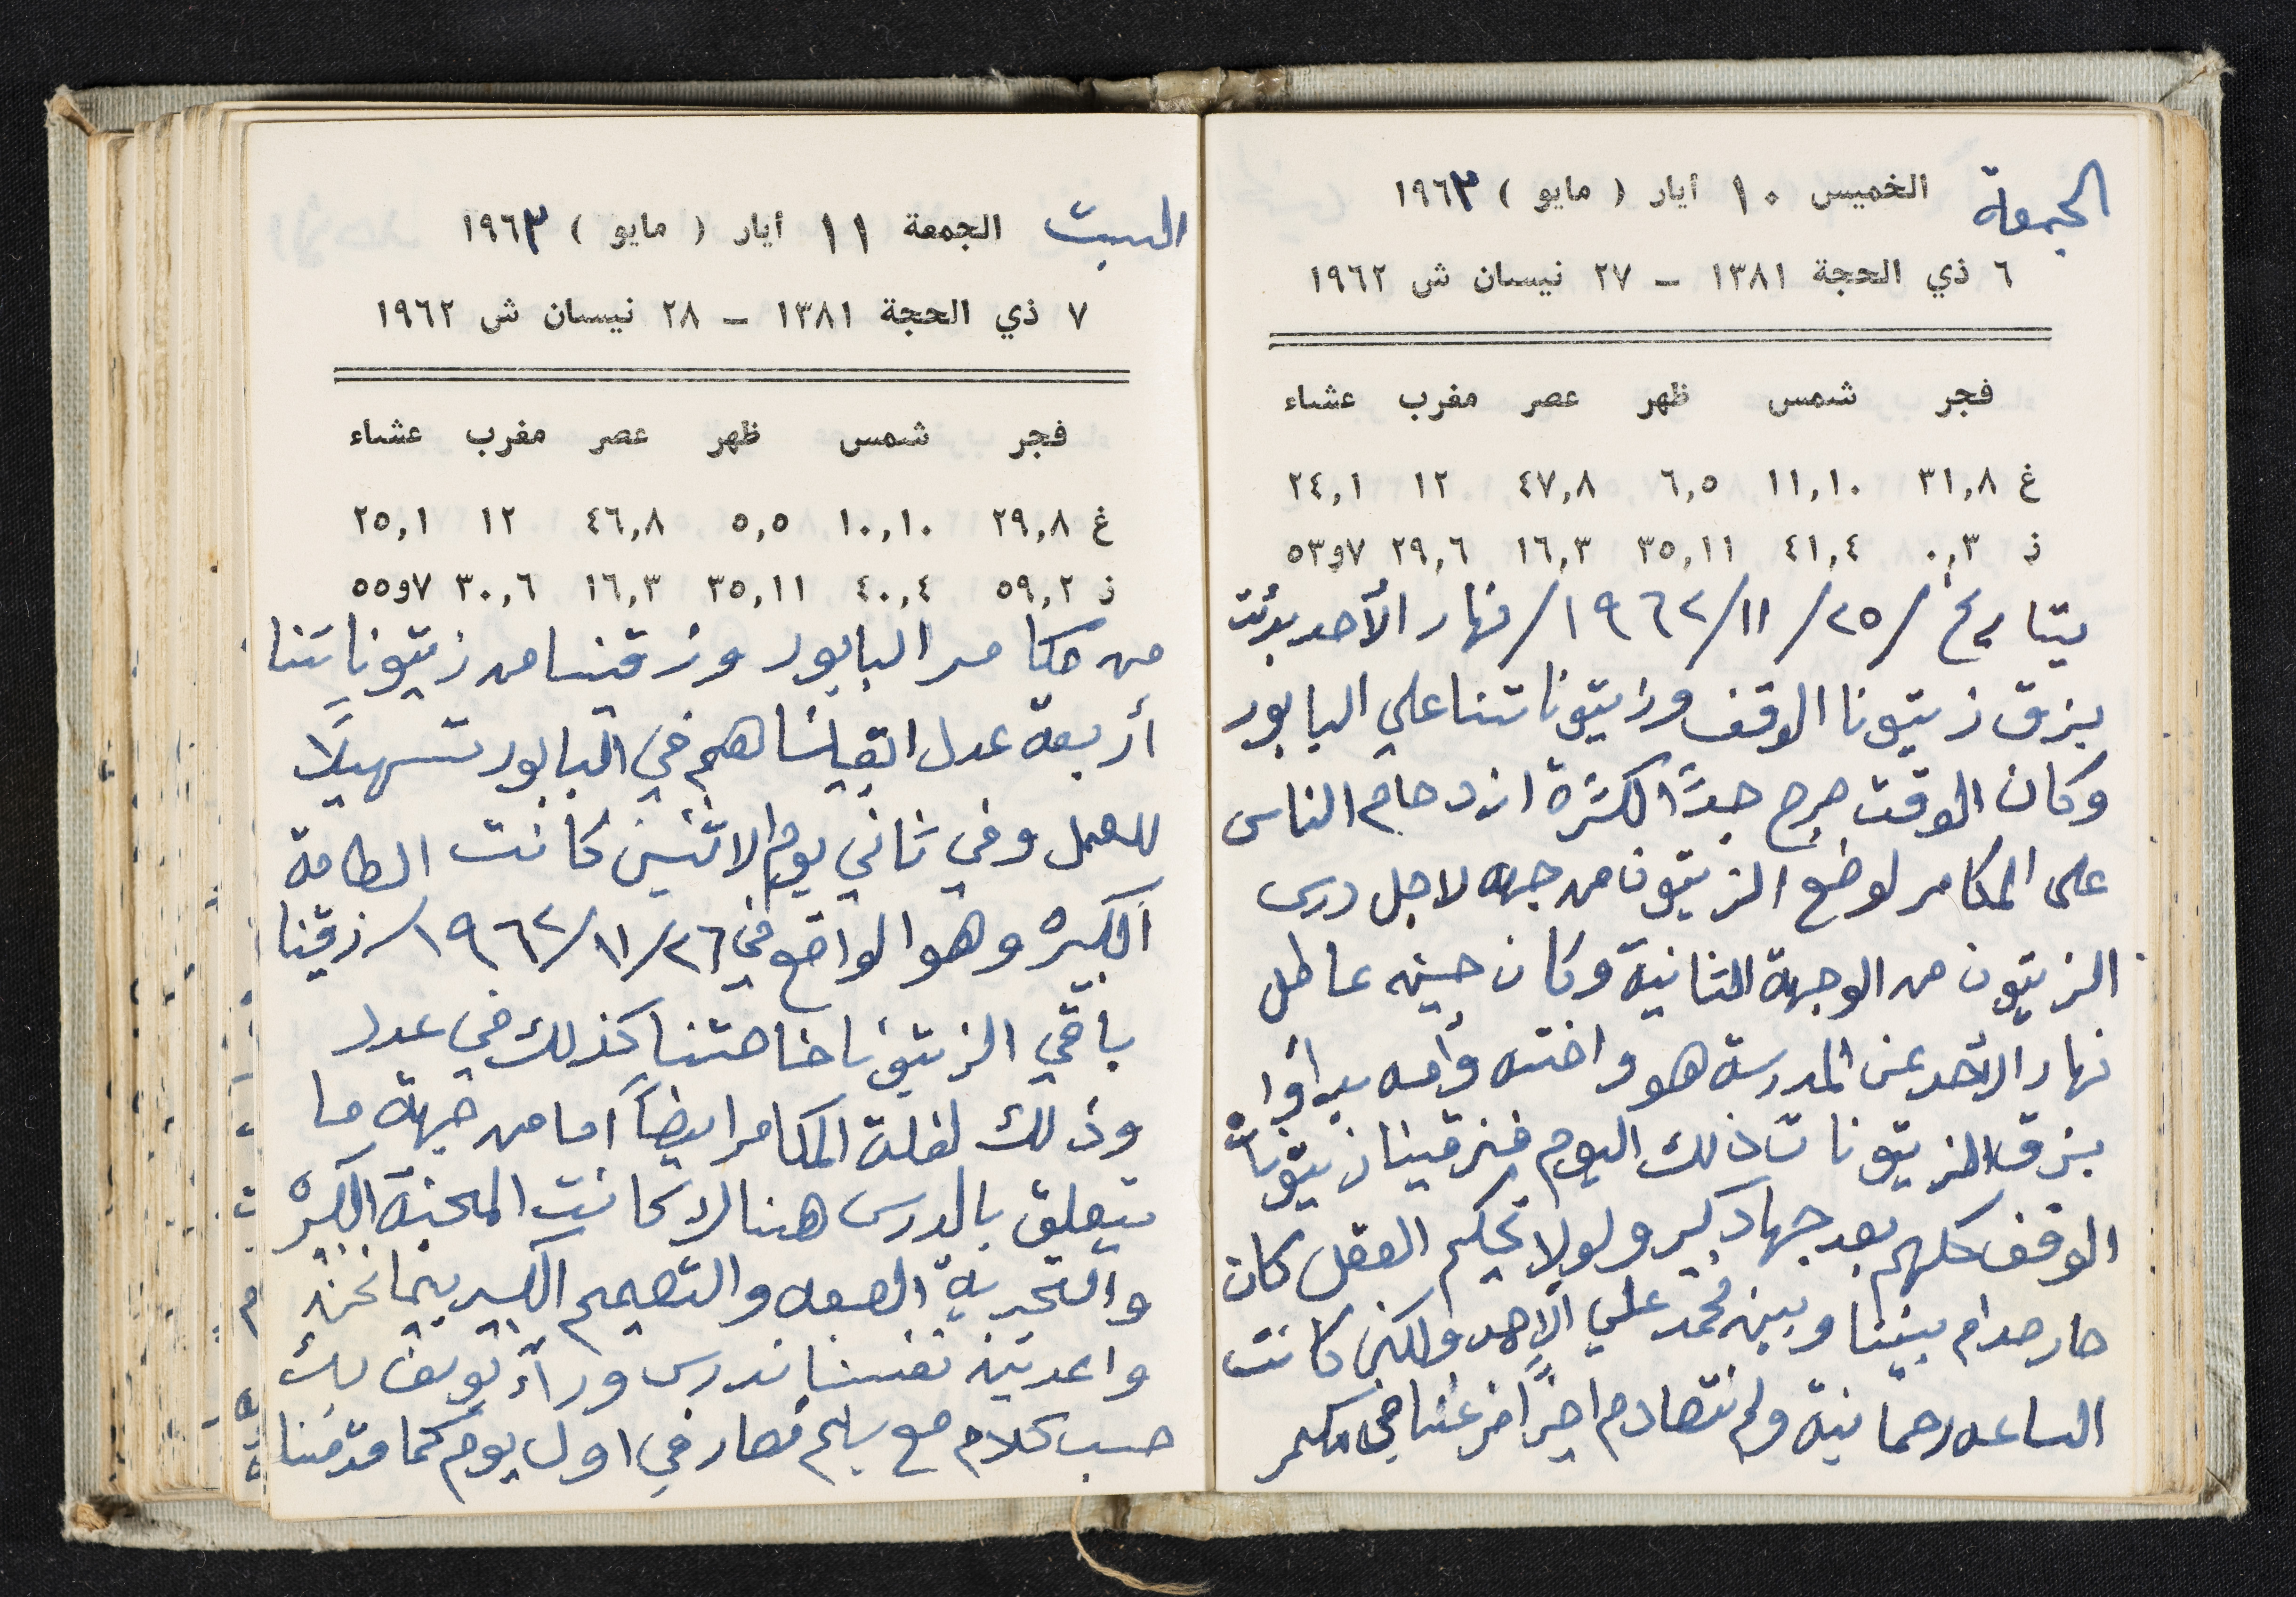 الجمعة الخميس ١٠ أيار ( مايو ) ١٩٦٣
٦ ذي الحجة ١٣٨١ – ٢٧ نيسان ش ١٩٦٢
فجر شمس ظهر عصر مغرب عشاء
غ ٣١,٨ ١١,١٠ ٦,٥ ٤٧,٨ ١٢ ٢٤,١
ز ٠,٣ ٤١,٤ ٣٥,١١ ١٦,٣ ٢٩,٦ ٧و٥٣
بتاريخ /٢٥/١١/١٩٦٢/ نهار الأحد بدئت
بزق زيتونا الوقف وزيتوناتنا علي البابور
وكان الوقت حرج جدًا لكثرة ازدحام الناس
على المكامر لوضع الزيتون من جهه لاجل درس
الزيتون من الوجهة الثانية وكان حينه عاطل
نهار الأحد عن المدرسة هو واخته وأمه بدأوا
بزق الزيتونات ذلك اليوم فزقينا زيتونات
الوقف كلهم بعد جهاد كبير ولولا تحكيم العقل كان
صار صدام بيننا وبين محمد علي الأحمد ولكن كانت
الساعه رحمانية ولم نتصادم اخرًا فرغنا في مكمر
السبت الجمعة ١١ أيار ( مايو ) ١٩٦٣
٧ ذي الحجة ١٣٨١ – ٢٨ نيسان ش ١٩٦٢
فجر شمس ظهر عصر مغرب عشاء
غ ٢٩,٨ ١٠,١٠ ٥,٥ ٤٦,٨ ١٢ ٢٥,١
ز ٥٩,٢ ٤٠,٤ ٣٥,١١ ١٦,٣ ٣٠,٦ ٧و٥٥
من مكامر البابور وزقينا من زيتوناتنا
أربعة عدل ابقيناهم في البابور تسهيلًا
للعمل وفي ثاني يوم الاثنين كانت الطامة
الكبيره وهو الواقع في ٢٦/١١/١٩٦٢/ زقينا
باقي الزيتونا خاصتنا كذلك في عدد
وذلك لقلة المكامر ايضاً اما من جهة ما
يتعلق بالدرس هنالك كانت المحنة الكبيره
والتجربة الصعبه والتصميم الكبير بينما نحن
واعدين نفسنا ندرس وراء توفيق بك
حسب كلام مع سليم فصار في اول يوم كما قدمنا